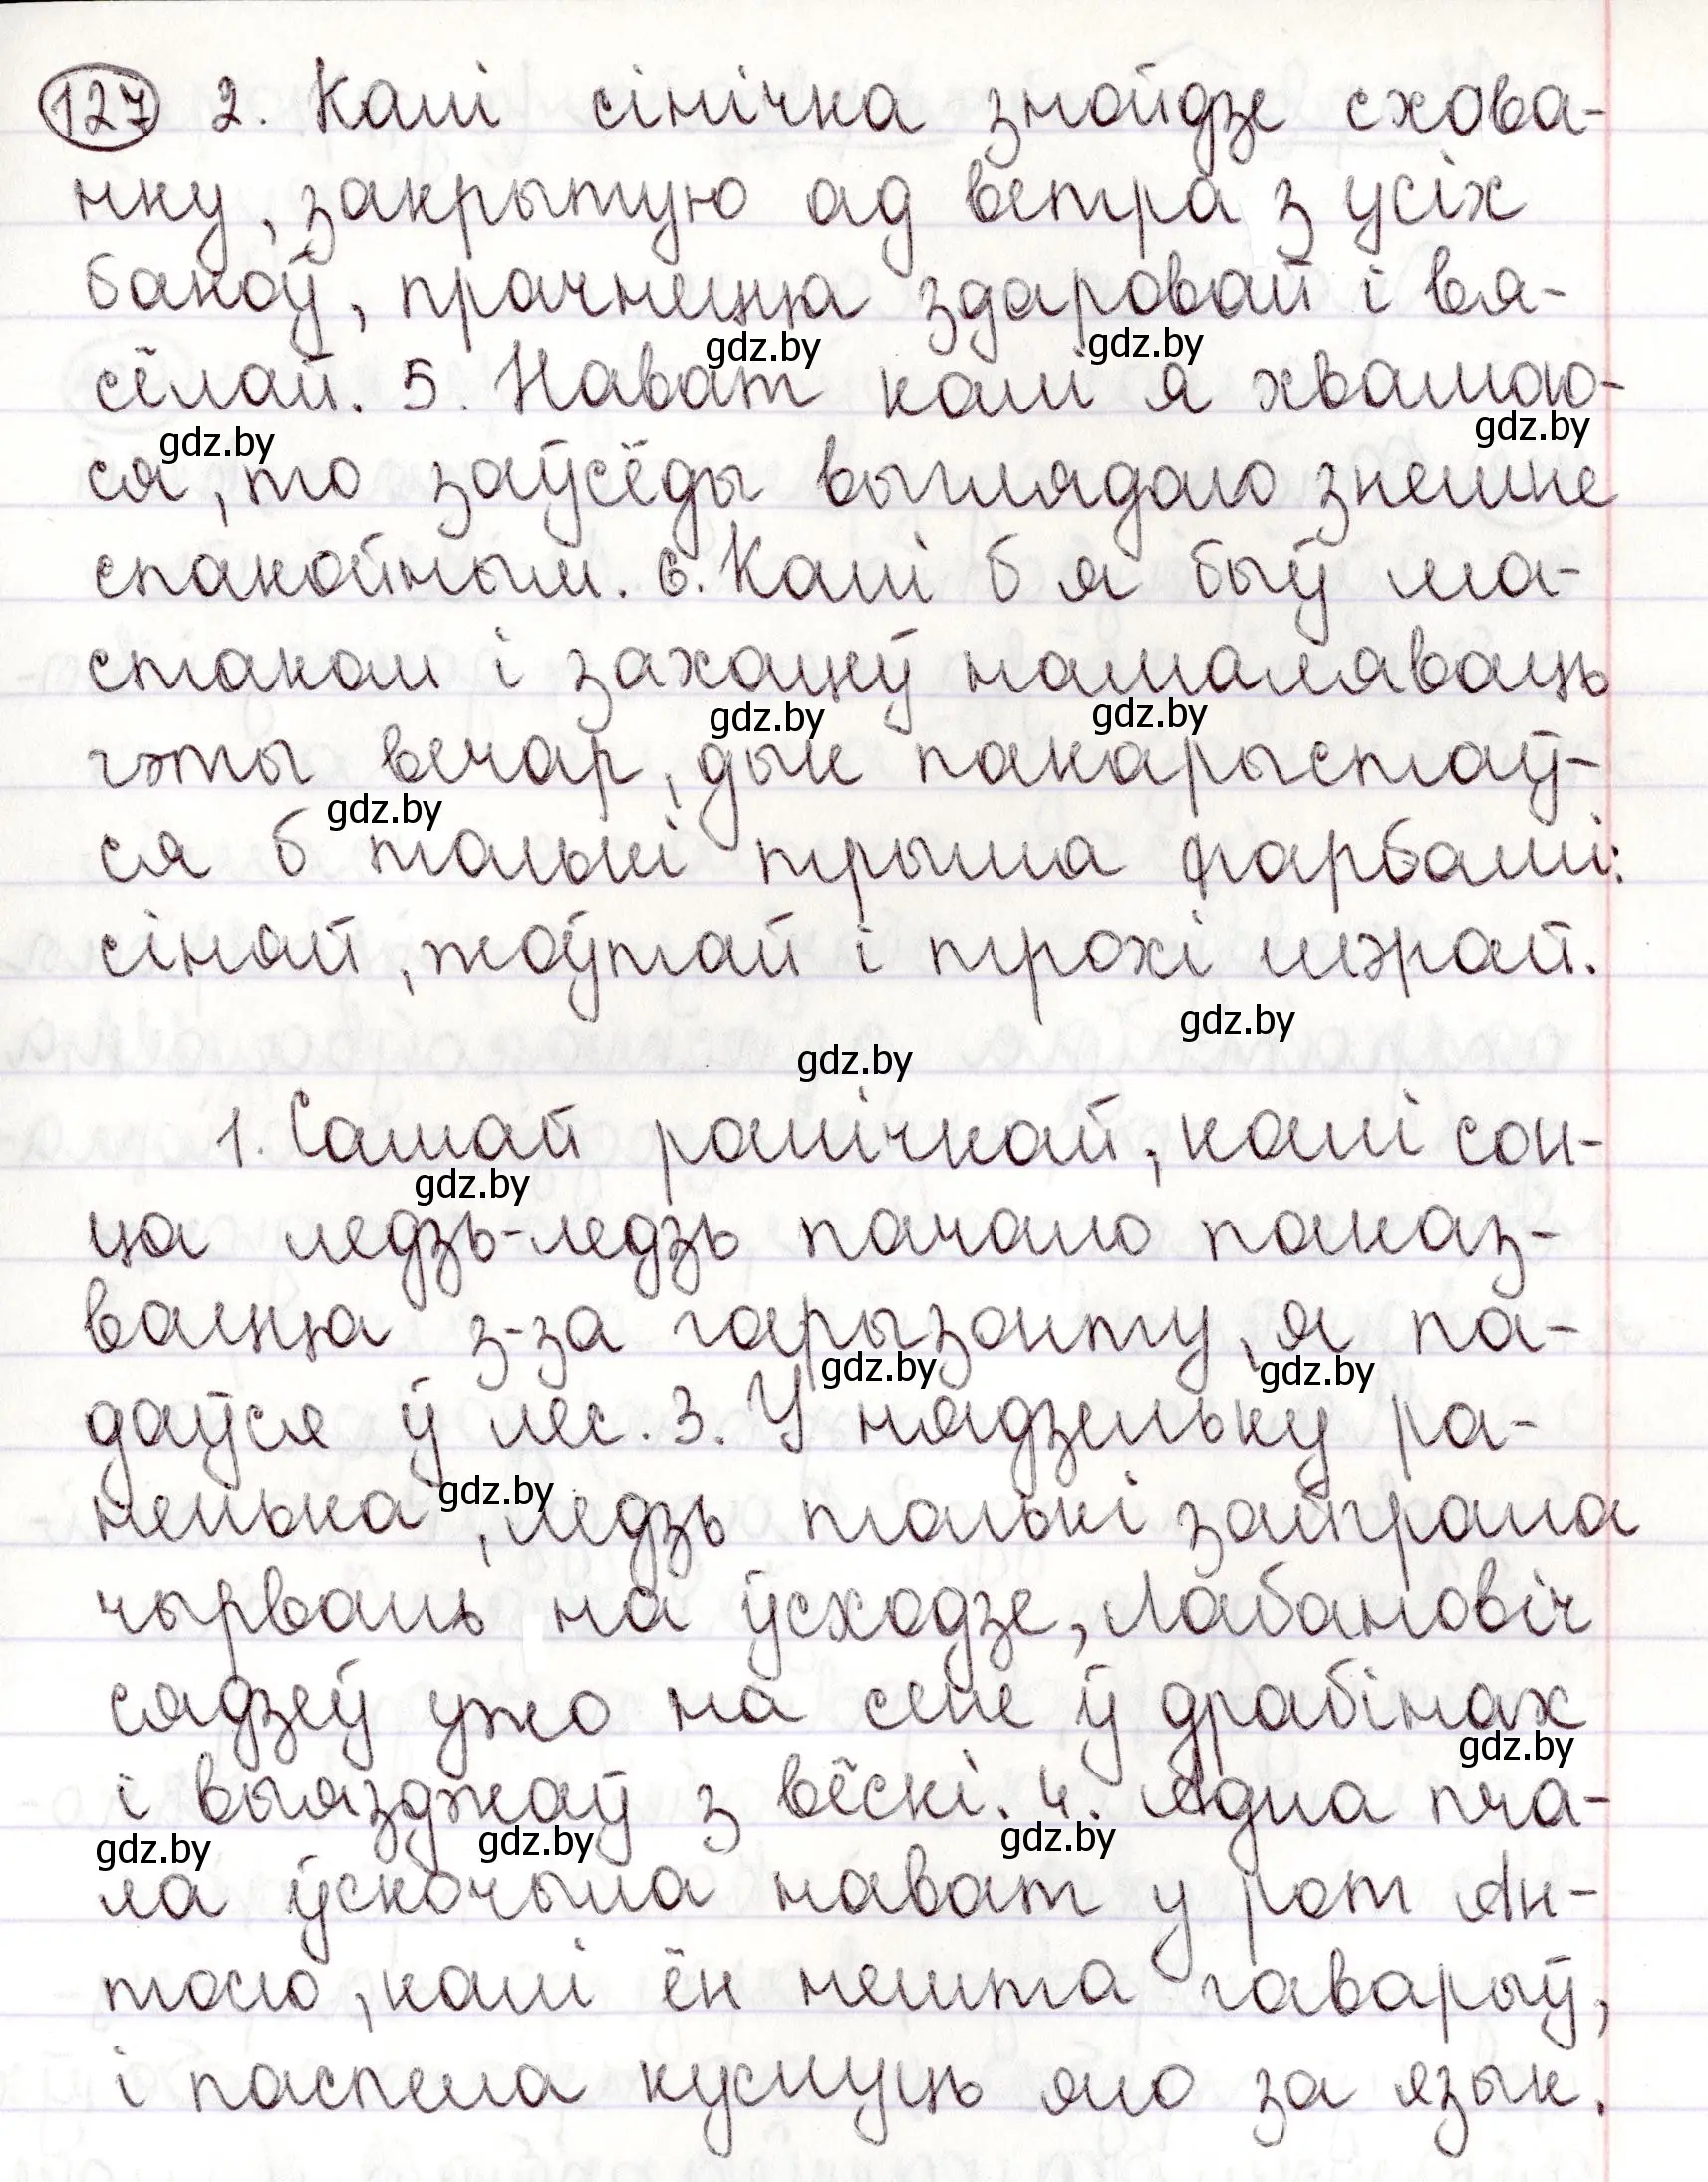 127 2. Калі сінічка знойдзе схова-
нку, закрытую ад ветра з усіх
бакоў, прачнецца здаровай і вя-
gdz.by gdz.by
сёлай. 5. Нават калі я хвалю-
gdz.by gdz.by
ся, то заўсёды выглядаю знешне
спакойным. 6. Калі б я быў ма-
стаком і захацеў намаляваць
gdz.by gdz.by
гэты вечар, дык пакарыстаў-
gdz.by
ся б толькі трыма фарбамі:
сіняй, жоўтай і трохі шэрай.
gdz.by
gdz.by
1. Самай ранічкай, калі сон-
gdz.by
ца ледзь-ледзь пачало паказ-
вацца з-за гарызонту, я па-
gdz.by gdz.by
даўся ў лес. 3. У нядзельку ра-
gdz.by
ненька, ледзь толькі зайграла
чырвань на ўсходзе, Лабановіч
сядзеў ужо на сене ў драбінах
gdz.by
і выязджаў з вёскі. 4. Адна пча-
gdz.by gdz.by gdz.by
ла ўскочыла нават у рот Ан-
тосю, калі ён нешта гаварыў,
і паспела куснуць яго за язык.